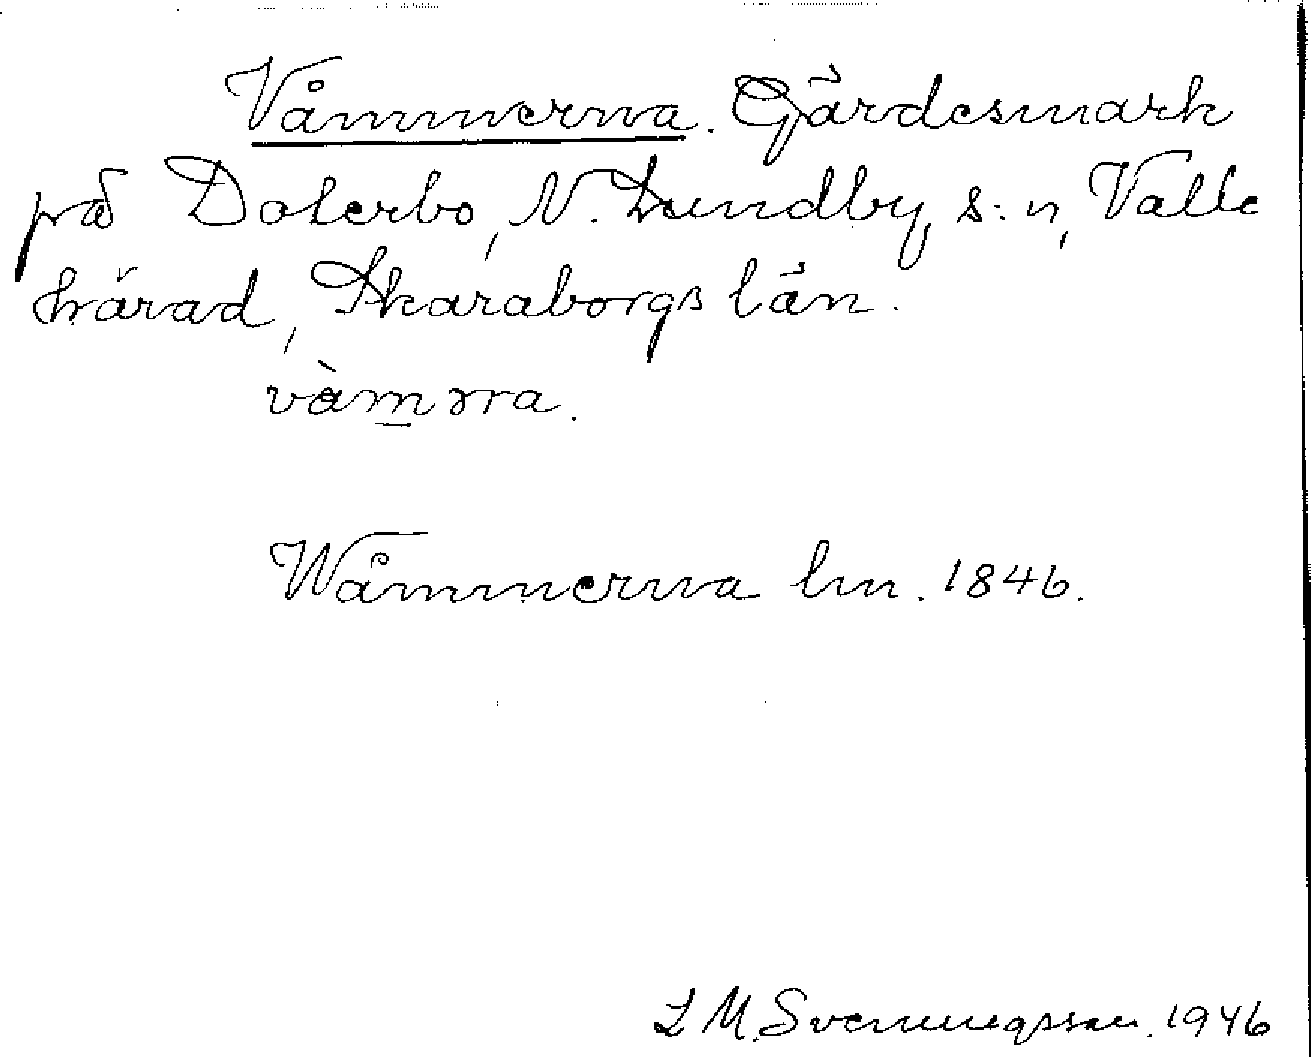 Våmmerna. Gärdesmark
på Doterbo, N. Lundby s:n, Valle
härad, Skaraborgs län.
vàm̲ɔrna.
Wåmmerna lm. 1846.
L M. Svenungsson. 1946